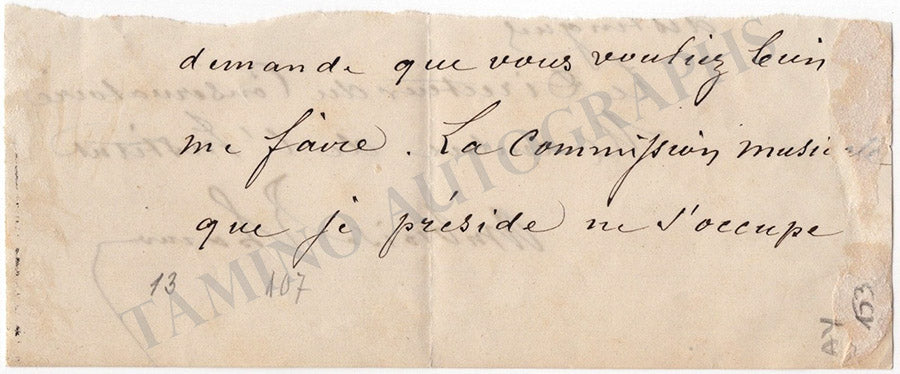 demande que vous vouliez bien
me faire. La Commission musi
que je préside ne s'occupe
13 107
153
AY
TAMINO AUTOGRAPHS